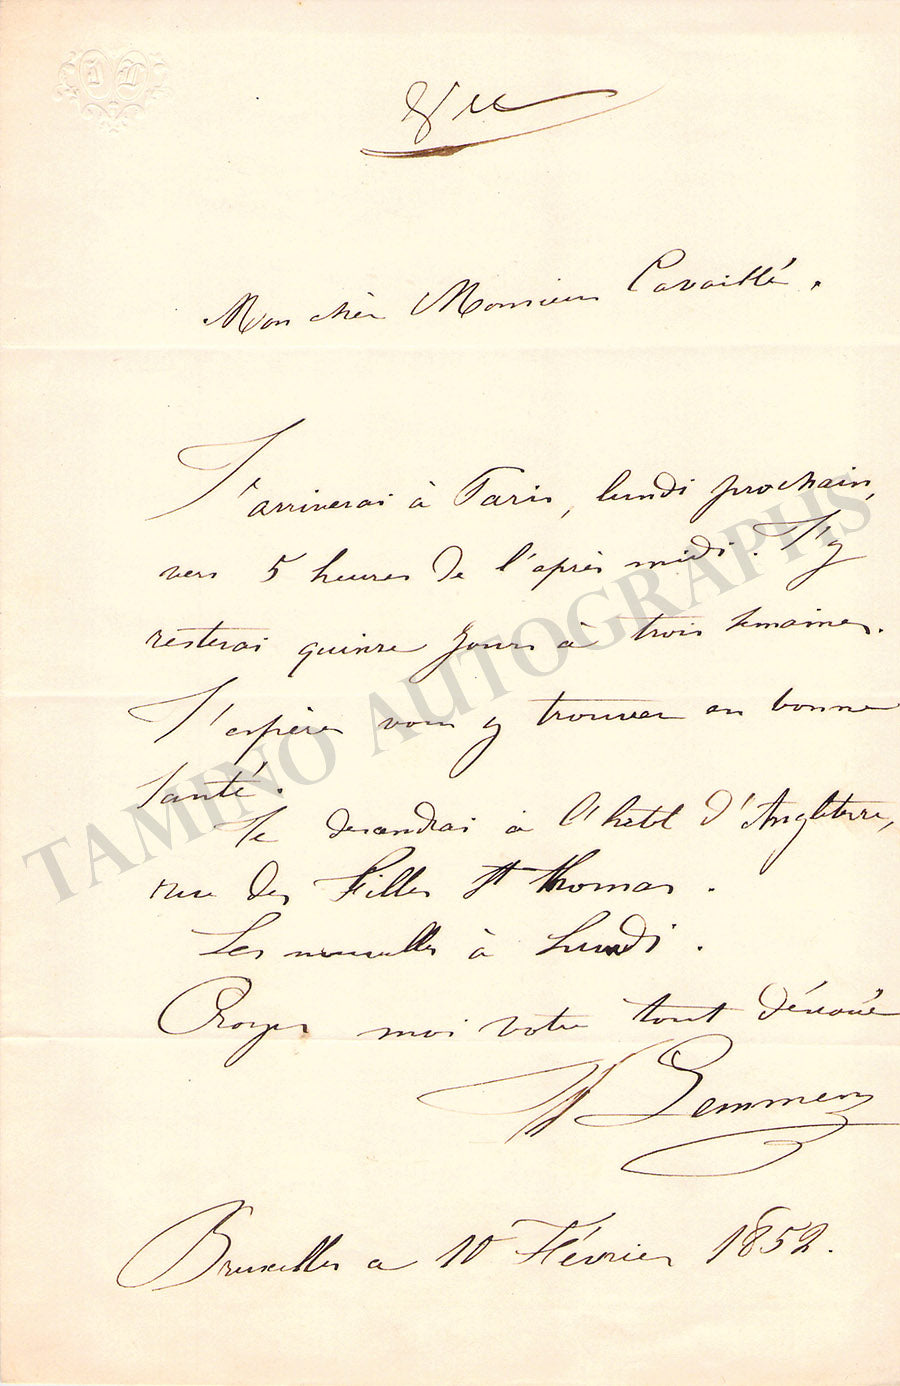 Mon cher Monsieur Cavaillé.
J'arriverai à Paris, lundi prochain,
vers 5 heures de l'après midi. J'y
resterai quinze jours à trois semaines.
J'espère vous y trouver en bonne
santé.
Je descendrai à l'hôtel d'Angleterre,
rue des Filles St Thomas.
Les nouvelles à Lundi.
Croyez moi votre tout dévoué
Lemmens
Bruxelles a 10 Février 1852.
TAMINO AUTOGRAPHS